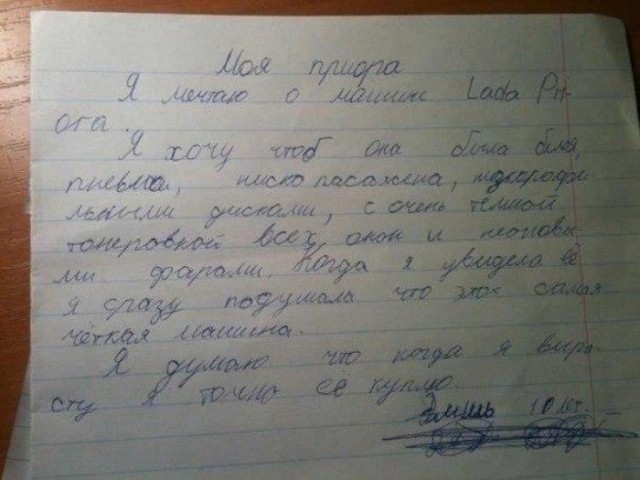 Моя приора
Я мечтаю о машине Lada Pri-
ora.
Я хочу чтоб она была белая,
пневма, ниско пасажена,
льными дисками, с очень тёмной
тонеровкой всех окон и неоновы
ми фарами. Когда я увидела её
я сразу подумала что этох самая
чёткая машина.
Я думаю что когда я выра-
сту я точно её куплю.
10 лет.